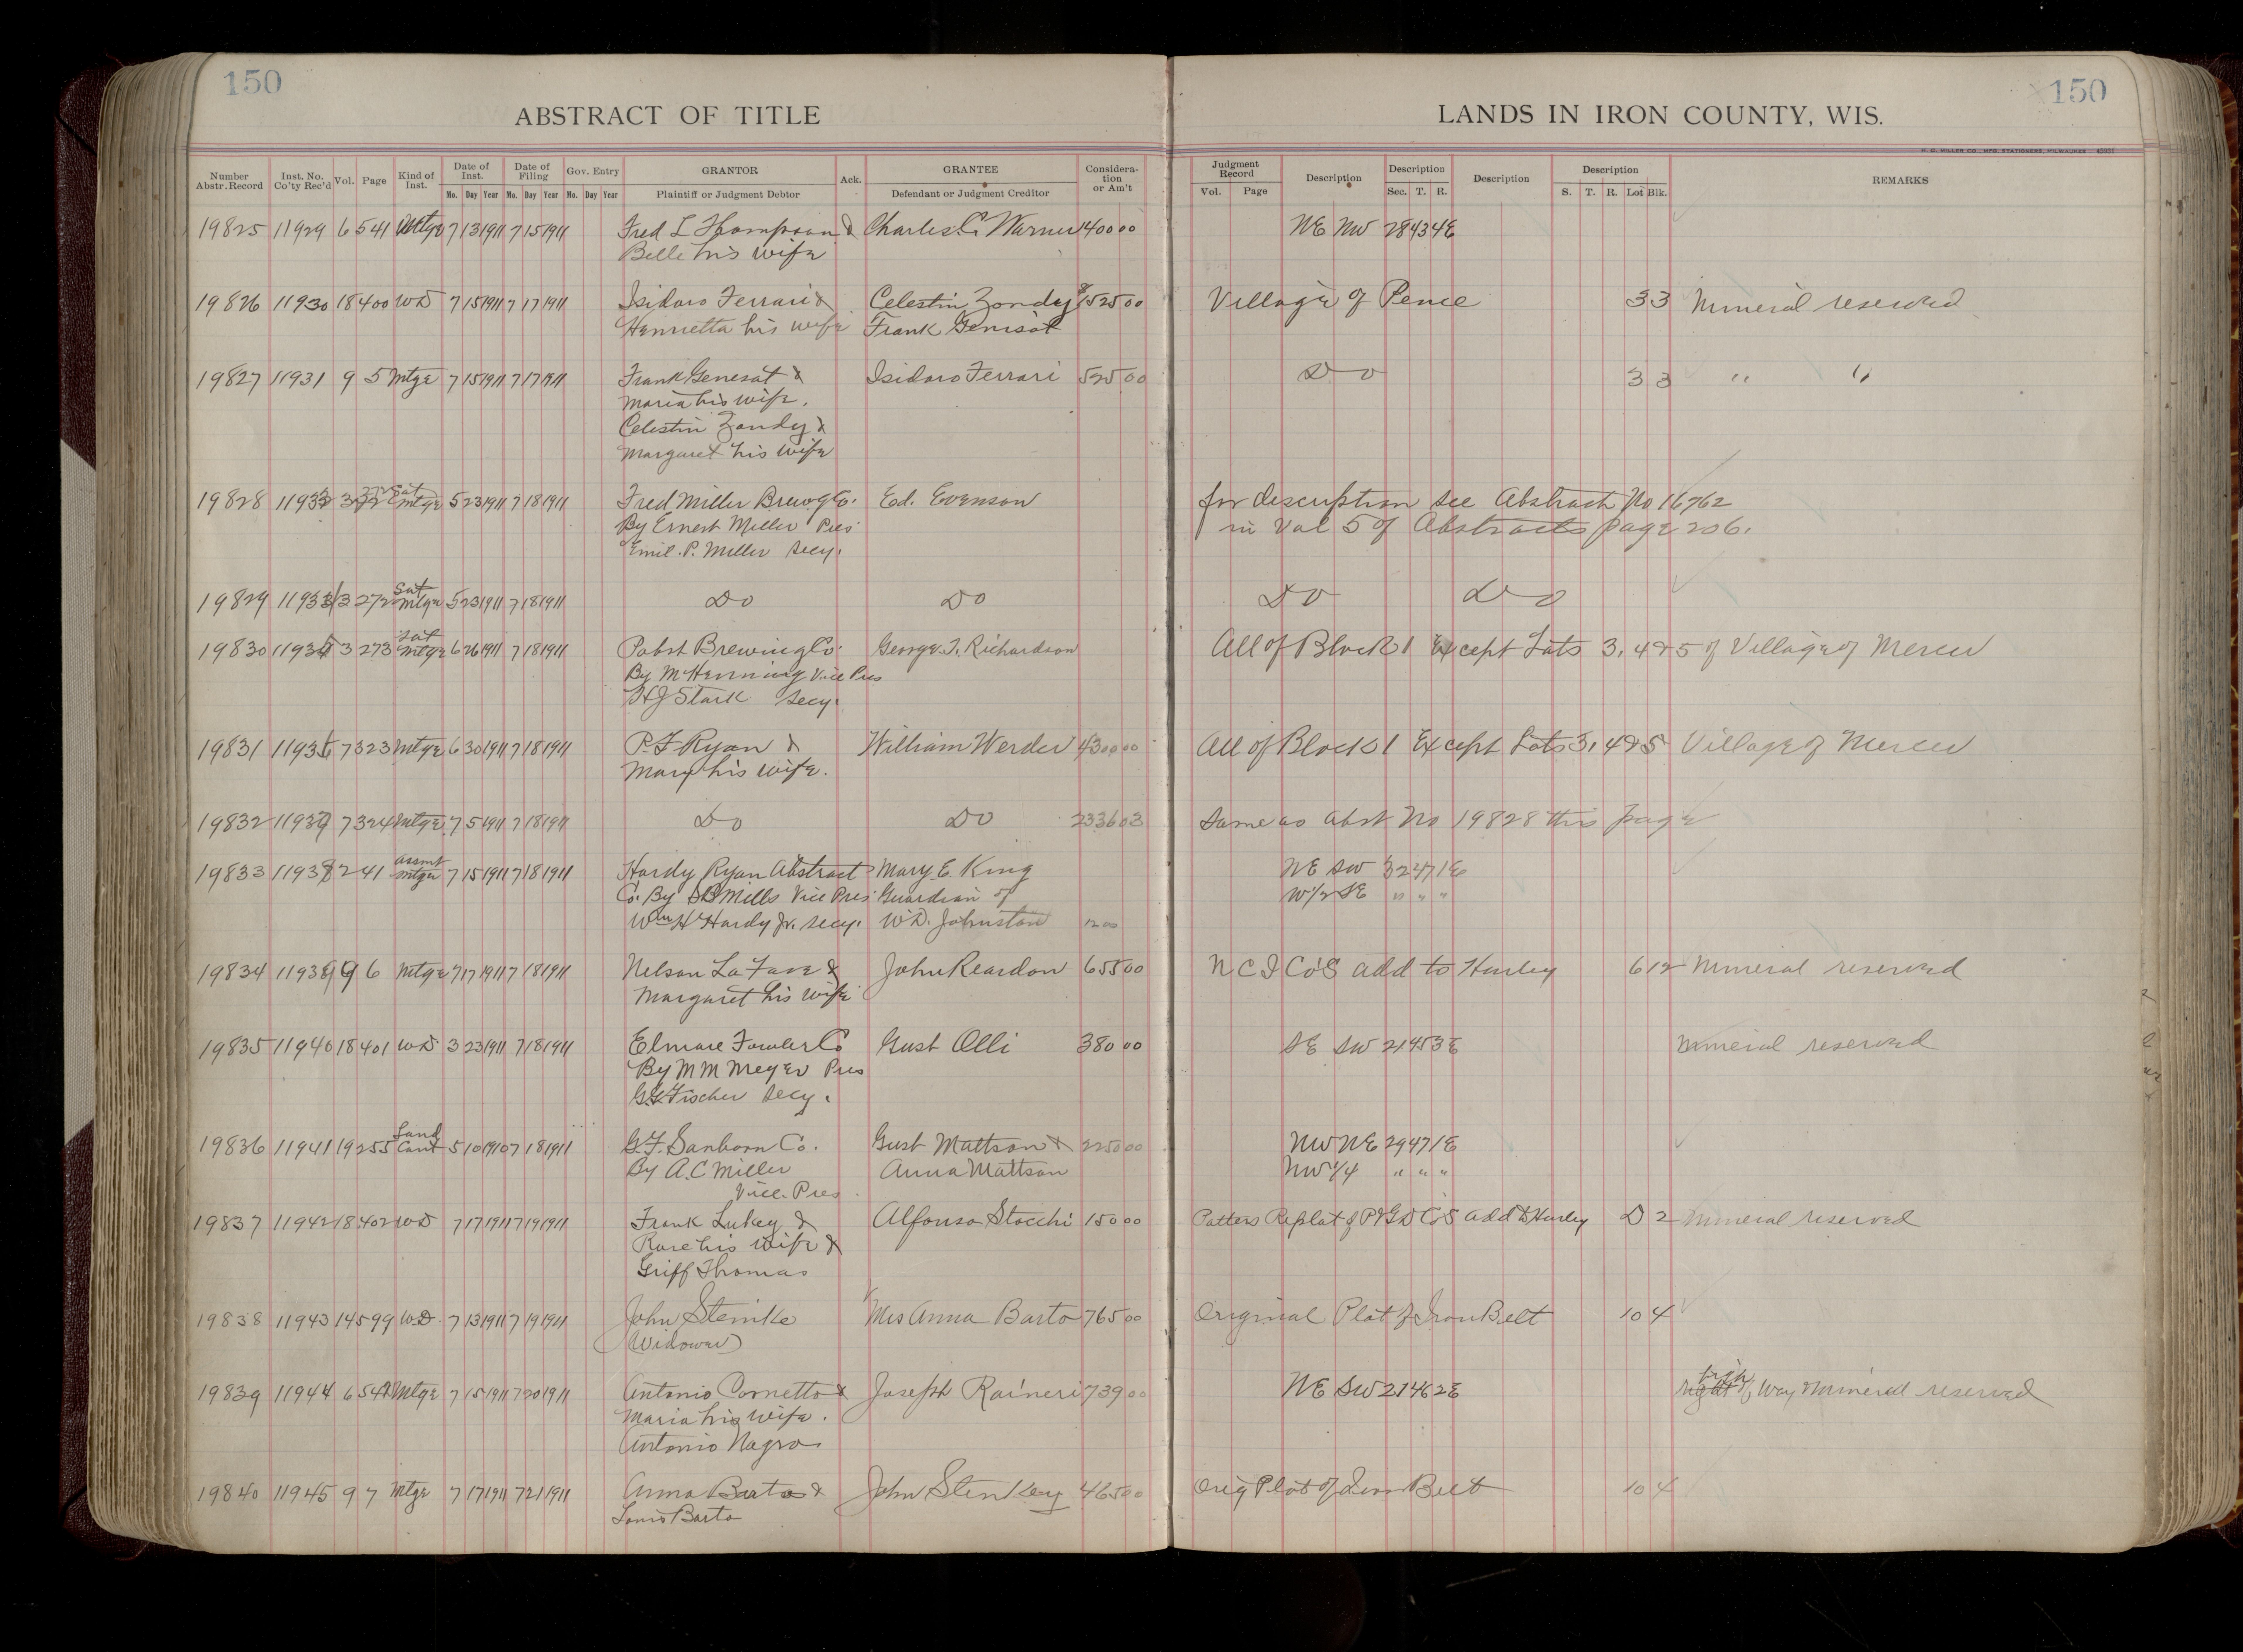 150
150
ABSTRACT OF TITLE
LANDS IN IRON COUNTY, WIS.
H. C. MILLER CO., MFG. STATIONERS, MILWAUKEE
Number Abstr. Record Inst. No. Co'ty Rec'd Vol. Page Kind of Inst. Date of Inst. Mo. Day Year Date of Filing Mo. Day Year Gov. Entry Mo. Day Year GRANTOR Plaintiff or Judgment Debtor Ack. GRANTEE Defendant or Judgment Creditor Considera- tion or Am't Judgment Record Vol. Page Description Description Sec. T. R. Description Description S. T. R. Lot Blk. REMARKS
19825 11929 6 541 Mtge 7 13 1911 7 15 1911 Fred L Thompson & Charles C. Warner 1400 00 NE NW 28 43 4E
Belle his wife
19826 11930 18 400 WD 7 15 1911 7 17 1911 Isidoro Ferrari & Celestin Zondy & 525 00 Village of Pence 3 3 Mineral reserved
Henrietta his wife Frank Genisot
19827 11931 9 5 Mtge 7 15 1911 7 17 1911 Frank Genesat & Isidoro Ferrari 525 00 Do 3 3 " "
Maria his wife.
Celestin Zondy &
Margaret his wife
19828 3 272 Sat Mtge 5 23 1911 7 18 1911 Fred Miller Brewg Co. Ed. Evenson for description see Abstract No 16762
By Ernest Miller Pres in Vol 5 of Abstracts page 206.
Emil. P. Miller Secy.
19829 3 272 Sat Mtge 5 23 1911 7 18 1911 Do Do Do Do
19830 3 273 Sat Mtge 6 26 1911 7 18 1911 Pabst Brewing Co. George T. Richardson All of Block 1 Except Lots 3, 4 & 5 of Village of Mercer
By M Henning Vice Pres
H J Stark Secy.
19831 7 323 Mtge 6 30 1911 7 18 1911 P. F Ryan & William Werder 4300 00 All of Block 1 Except Lots 3, 4 & 5 Village of Mercer
Mary his wife.
19832 11937 7 324 Mtge 7 5 1911 7 18 1911 Do Do 2336 03 Same as Abst No 19828 this page
19833 11938 2 41 assmt Mtge 7 15 1911 7 18 1911 Hardy Ryan Abstract Mary E King NE SW 32 47 1E
Co. By S B Mills Vice Pres Guardian of W 1/2 SE " " "
Wm H Hardy Jr. Secy. W. D. Johnston 12 00
19834 11939 9 6 Mtge 7 17 1911 7 18 1911 Nelson La Fave & John Reardon 655 00 N C I Co's Add to Hurley 6 12 Mineral reserved
Margaret his wife
19835 11940 18 401 WD 3 23 1911 7 18 1911 Elmore Fowler Co Gust Olli 380 00 SE SW 21 45 3E Mineral reserved
By M M Meyer Pres
G. G. Fischer Secy.
19836 11941 19 255 Land Cont 5 10 1910 7 18 1911 G. F. Sanborn Co. Gust Mattson & 2250 00 NW NE 29 47 1E
By A. C Miller Anna Mattson NW 1/4 " " "
Vice. Pres
19837 11942 18 402 WD 7 17 1911 7 19 1911 Frank Lukey & Alfonso Stocchi 150 00 Patters Replat of P & G D Co's Add to Hurley D 2 Mineral reserved
Rose his wife &
Griff Thomas
19838 11943 14 599 WD 7 13 1911 7 19 1911 John Steinke Mrs Anna Barto 765 00 Original Plat of Iron Belt 10 4
(Widower)
19839 11944 6 542 Mtge 7 15 1911 7 20 1911 Antonio Cornetto & Joseph Raineri 739 00 NE SW 21 46 2E right of Way Mineral reserved
Maria his wife.
Antonio Nagro
19840 11945 9 7 Mtge 7 17 1911 7 21 1911 Anna Barto & John Stenkey 465 00 Orig Plat of Iron Belt 10 4
Louis Barto